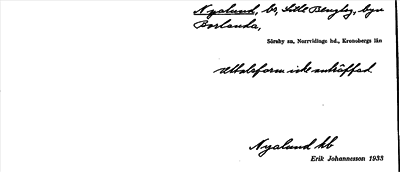 Nyalund, br, Lilla Bengtsg, byn
Borlanda,
Söraby sn, Norrvidinge hd., Kronobergs län
Uttalsform icke anträffad.
Nyalund kb
Erik Johannesson 1933